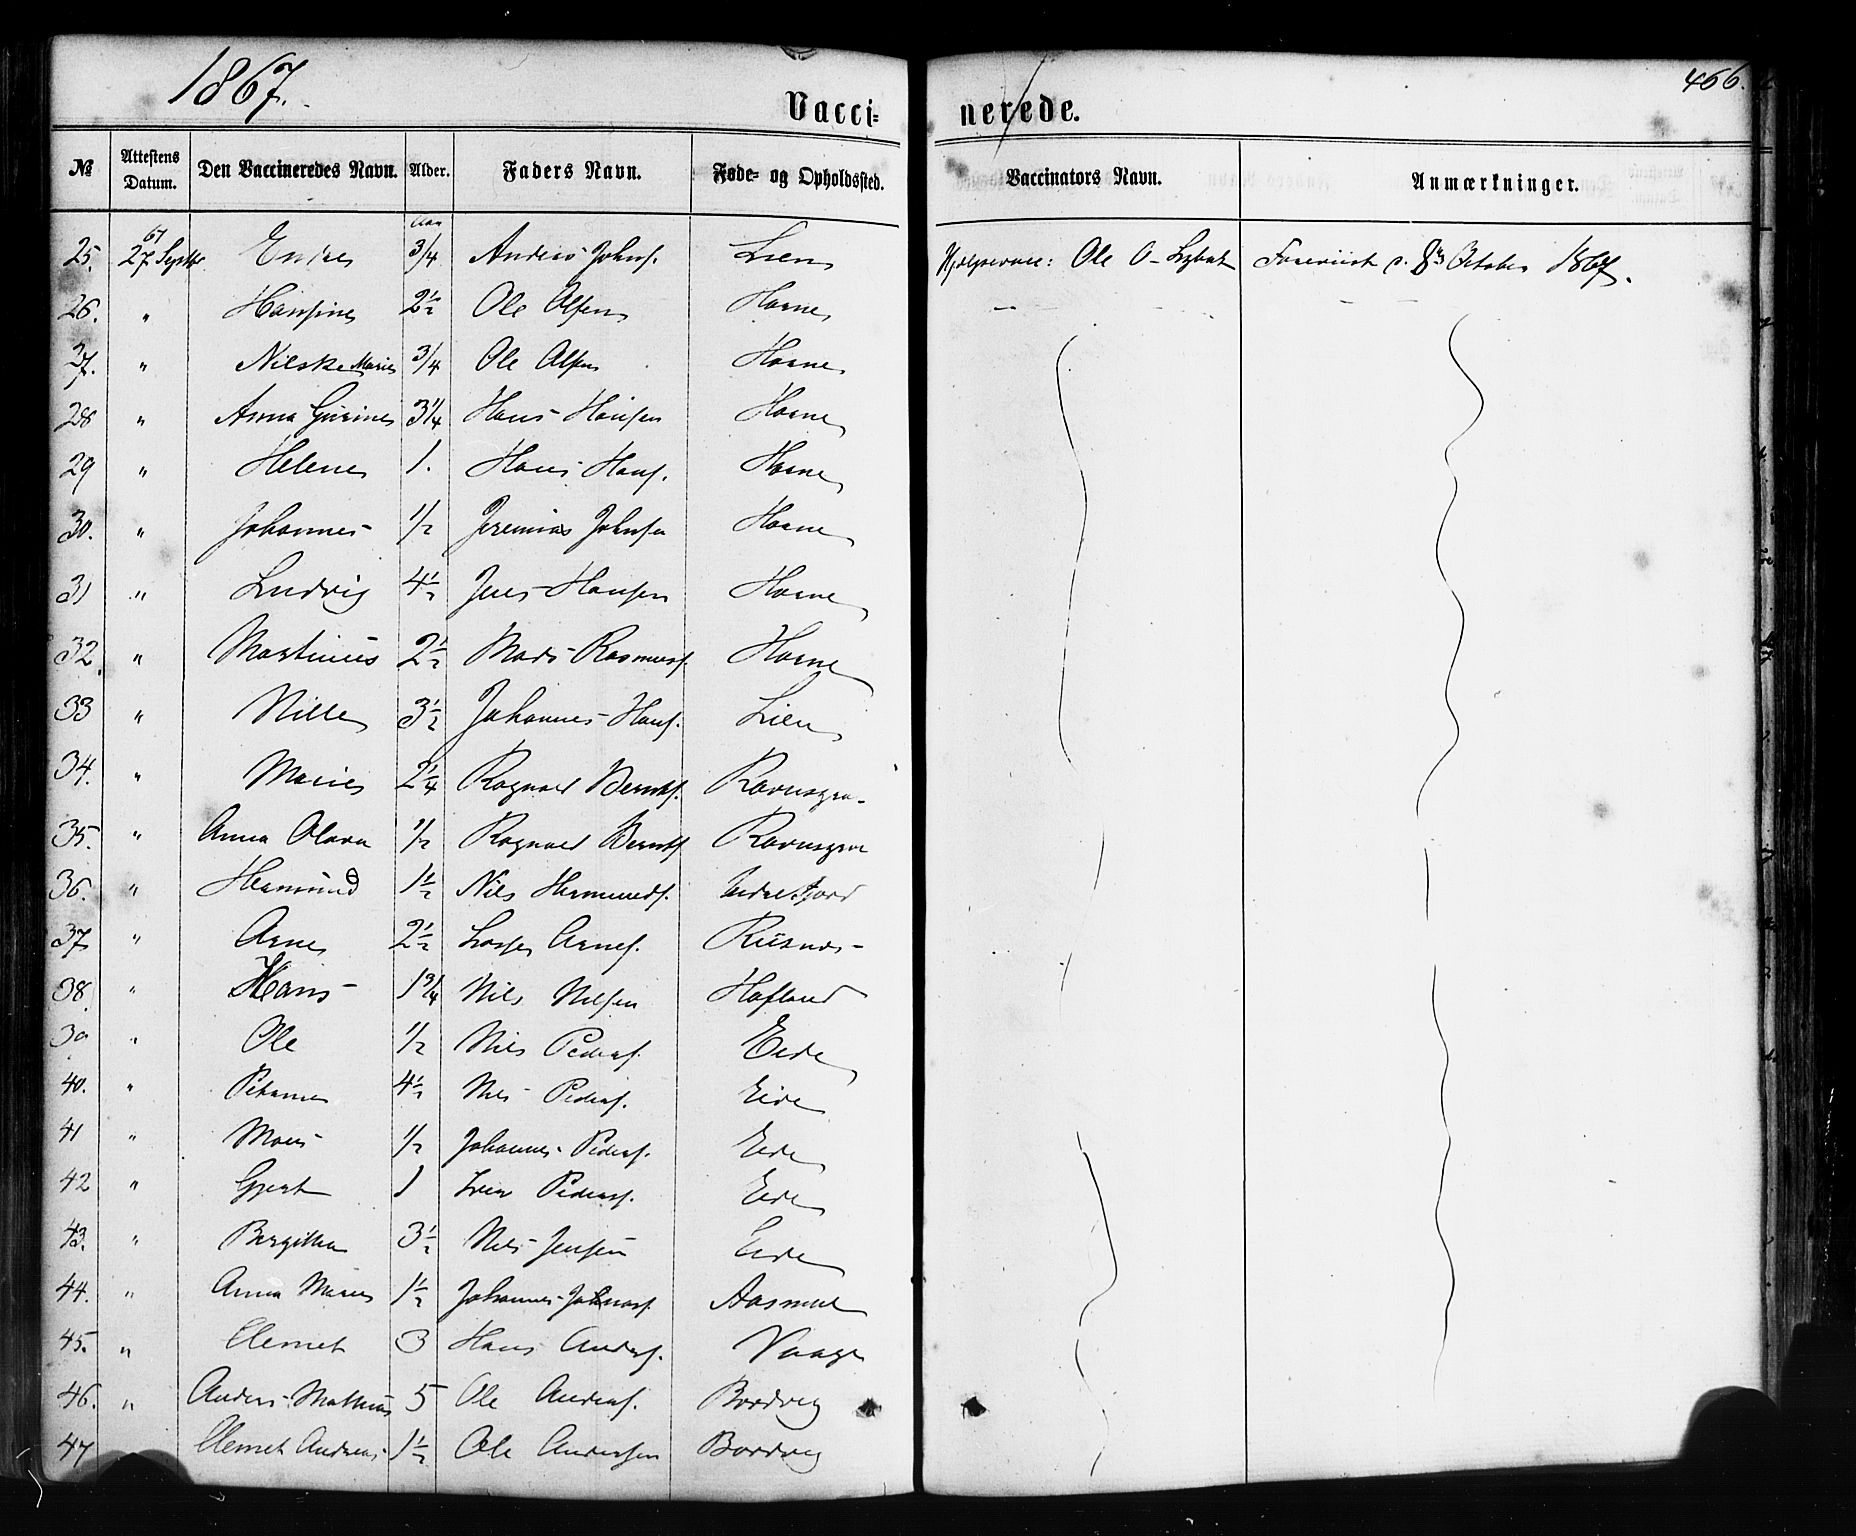 1867.
466.
Vacci= nerede.
№ Attestens Datum. Den Vaccineredes Navn. Alder. Faders Navn. Føde- og Opholdssted. Vaccinators Navn. Anmærkninger.
25. 27 Septbr 67 Endre 3/4 Aar Anders Johns. Lien Hjelpevacc: Ole O Foreviist d. 8de October 1867.
26. " Hansine 2 1/2 Ole Olsen Horne — — —
27. " Nilske Marie 3/4 Ole Olsen Horne
28 " Anna Gurine 3 1/4 Hans Hansen Horne
29 " Helene 1. Hans Hans. Horne
30. " Johannes 1/2 Jeremias Johnsen Horne
31 " Ludvig 4 1/2 Jens Hansen Horne
32. " Martinus 2 1/2 Mads Rasmuss. Horne
33 " Nille 3 1/2 Johannes Hans. Lien
34. " Marie 2 1/4 Ragnald Bernts. Ravnsgra
35. " Anna Olava 1/2 Ragnald Bernts. Ravnsgra
36. " Hermund 1 1/2 Nils Hermunds. Indrefjord
37 " Arne 2 1/2 Lasse Arnes. Riisnæs
38. " Hans 1 3/4 Nils Nilsen Hafland
39 " Ole 1/2 Nils Peders. Eide
40. " 4 1/2 Nils Peders. Eide
41 " Mons 1/2 Johannes Peders. Eide
42 " Gjert 1 Iver Peders. Eide
43. " Bergitha 3 1/2 Nils Jensen Eide
44. " Anna Marie 1 1/2 Johannes Aasmul
45. " Clemet 3 Hans Anders. Vaage
46. " Anders Mathias 5 Ole Anders. Bordvig
47 Clemet Andreas 1 1/2 Ole Andersen Bordvig